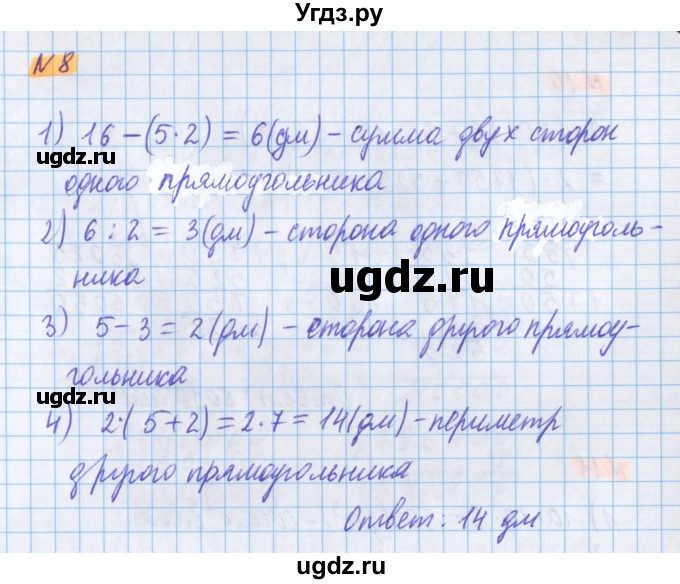 Угдз.ру
N 8
1) 16 – (5·2) = 6(дм) – сумма двух сторон
ugdz.ru
одного прямоугольника
2) 6 : 2 = 3(дм) – сторона одного прямоуголь-
ugdz.ru
ника
3) 5 – 3 = 2 (дм) – сторона другого прямоу-
гольника
ugdz.ru
4) 2·(5+2) = 2·7 = 14(дм) – периметр
другого прямоугольника
Ответ: 14 дм
ugdz.ru ugdz.ru
Угдз.ру